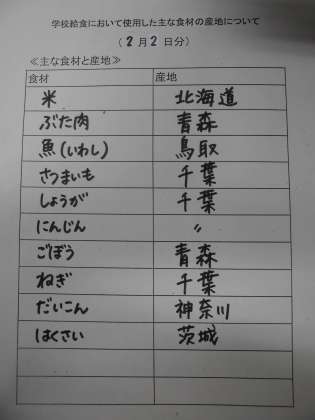 学校給食において使用した主な食材の産地について
(2月2日分)
≪主な食材と産地≫
食材 産地
米 北海道
ぶた肉 青森
魚(いわし) 鳥取
さつまいも 千葉
しょうが 千葉
にんじん 〃
ごぼう 青森
ねぎ 千葉
だいこん 神奈川
はくさい 茨城